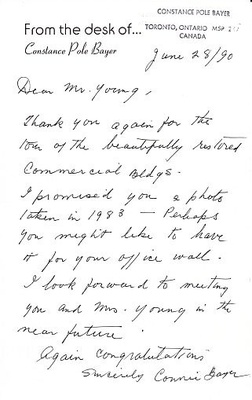 CONSTANCE POLE BAYER
TORONTO, ONTARIO M5P
CANADA
From the desk of...
Constance Pole Bayer
June 28/90
Dear Mr. Young,
Thank you again for the
tour of the beautifully restored
Commercial Bldgs.
I promised you a photo
taken in 1983 — Perhaps
you might like to have
it for your office wall.
I look forward to meeting
you and Mrs. Young in the
near future.
Again congratulations
Sincerely Connie Bayer